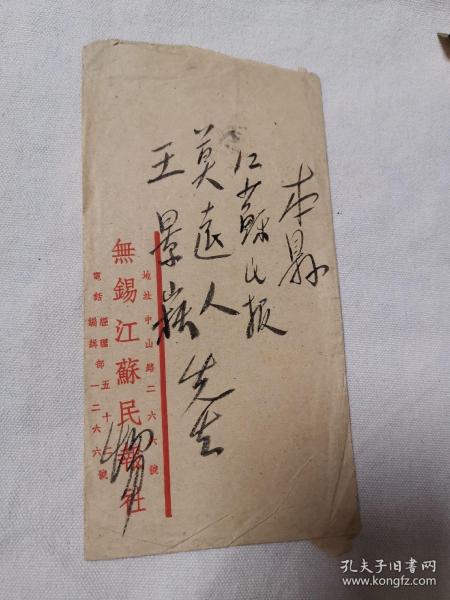 本县
江蘇民报
莫遠人
王景 先生
地址中山路二六六號
無錫江蘇民報社
電話 經理部五十二 編輯部一二六六號
孔夫子旧书网
www.kongfz.com